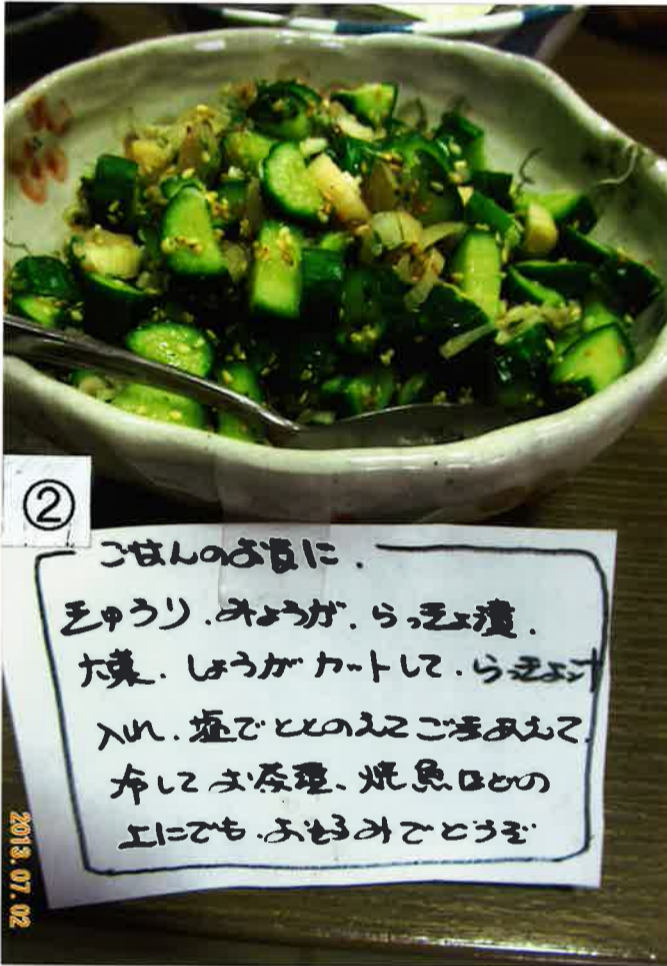 ②
ごはんのお供に.
きゅうり.みょうが.らっきょ漬.
大葉.しょうがカットして.らっきょ汁
入れ.塩でととのえてごまあえて.
冷してお茶漬.焼魚などの
上にでも.お好みでどうぞ
2013.07.02